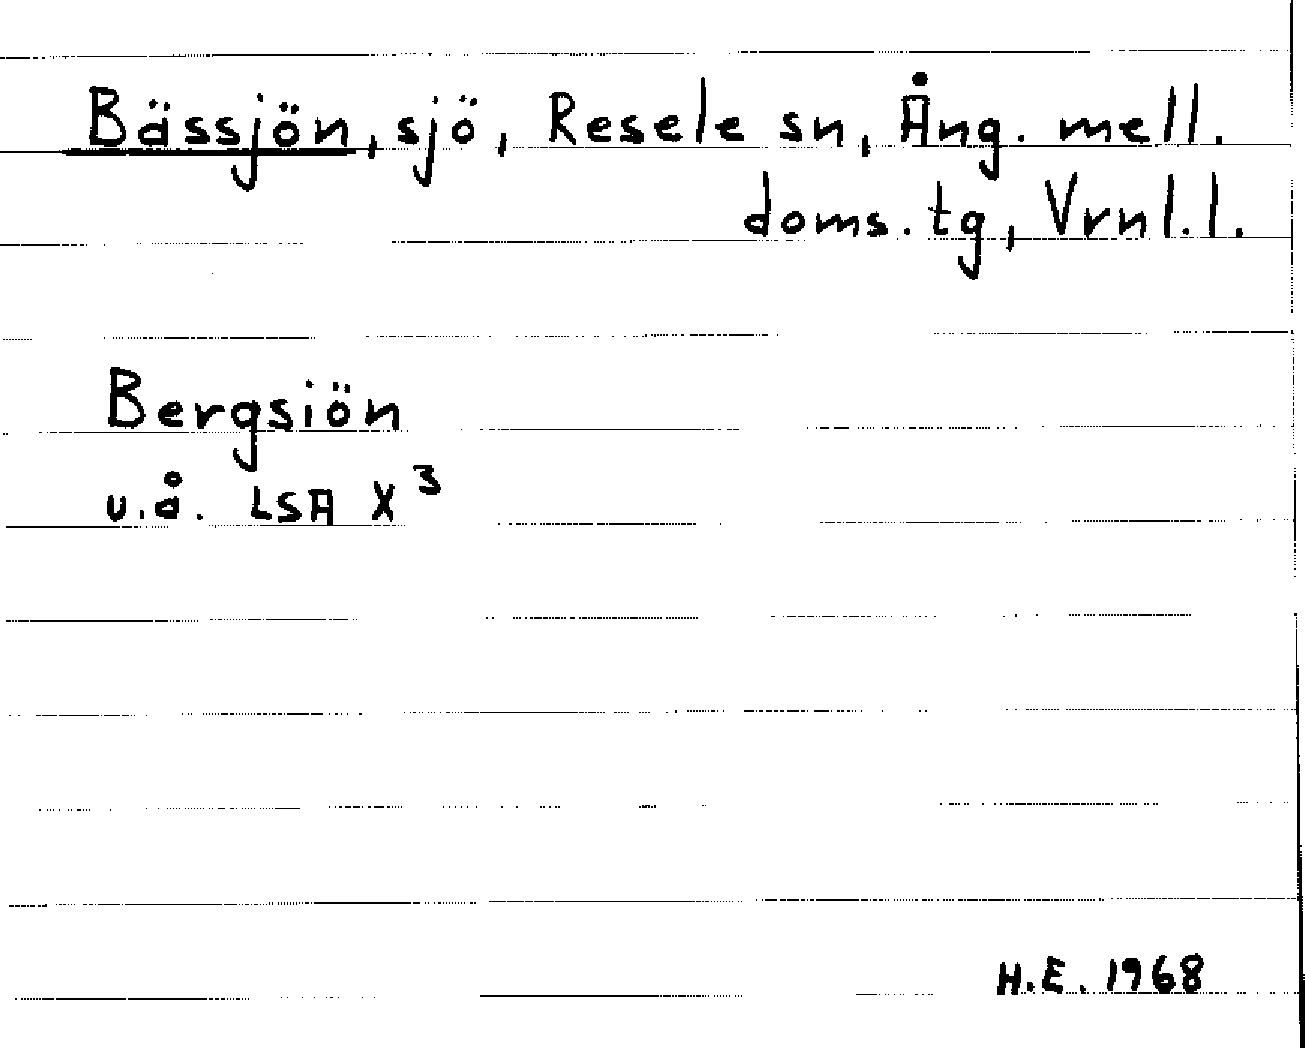 Bässjön, sjö, Resele sn, Ång. mell.
doms. tg, Vrnl. l.
Bergsiön
u.å. LSA X³
H.E. 1968